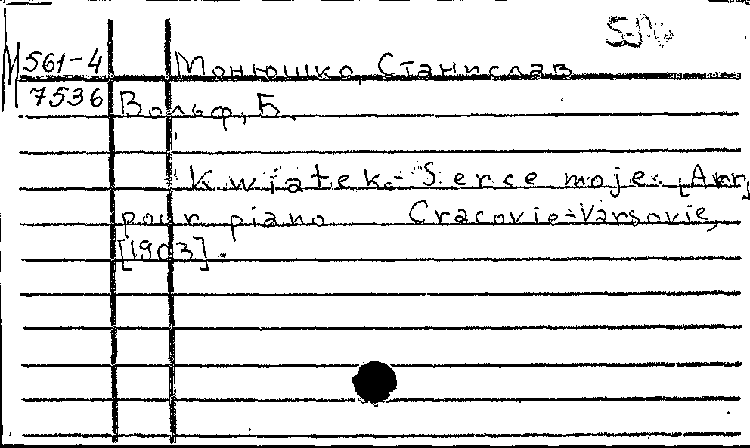 М 561-4 Монюшко, Станислав
7536 Вольф, Б.
Kwiatek.- Serce moje. [Arr.
pour piano Cracovie-Varsovie,
[1903].